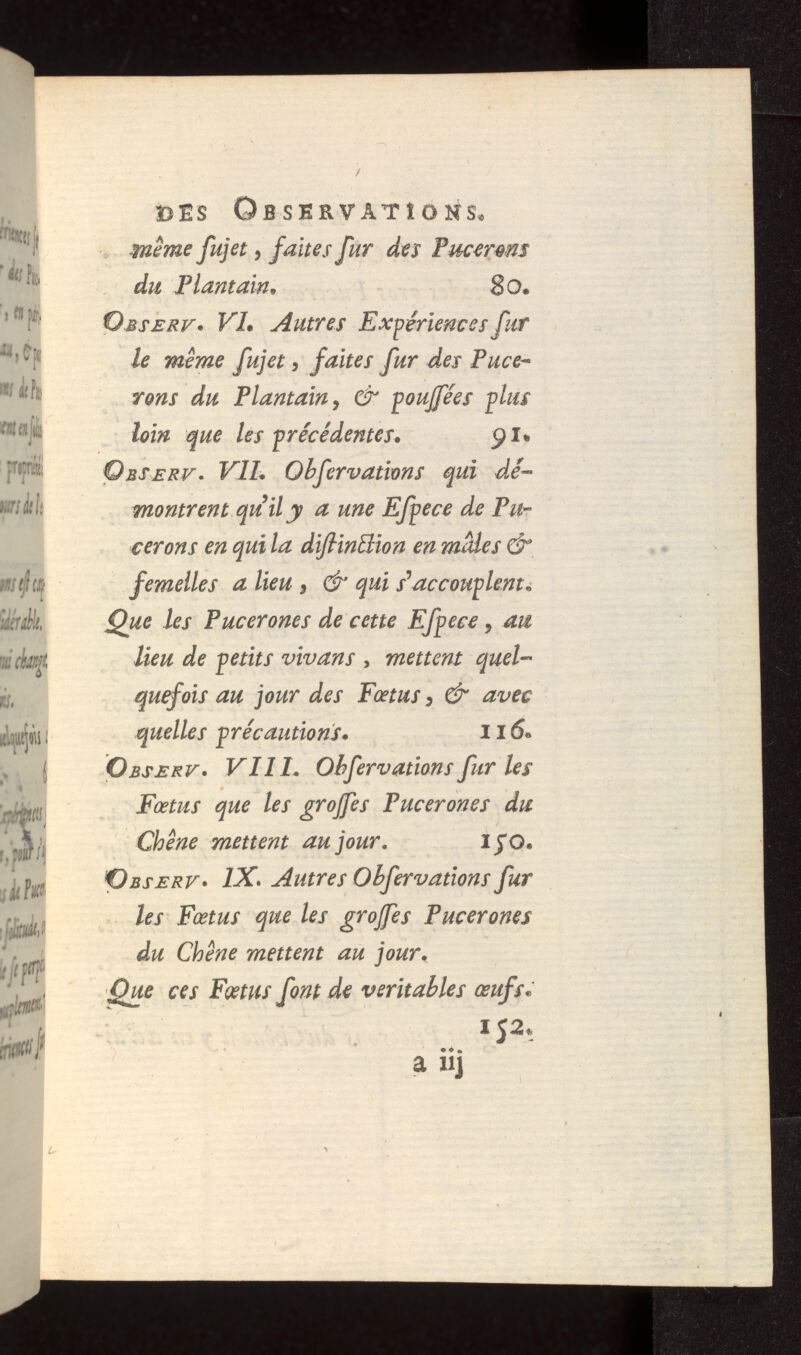 DES OBSERVATIONS.
même ſujet, faites ſur des Pucerons
du Plantain. 80.
OBSERV. VI. Autres Expériences ſur
le même ſujet, faites ſur des Puce-
rons du Plantain, & pouſſées plus
loin que les précédentes. 91.
OBSERV. VII. Obſervations qui dé-
montrent qu'il y a une Eſpece de Pu-
cerons en qui la diſtinction en mâles &
femelles a lieu, & qui s'accouplent.
Que les Pucerones de cette Eſpece, au
lieu de petits vivans, mettent quel-
quefois au jour des Fœtus, & avec
quelles précautions. 116.
OBSERV. VIII. Obſervations ſur les
Fœtus que les groſſes Pucerones du
Chêne mettent au jour. 150.
OBSERV. IX. Autres Obſervations ſur
les Fœtus que les groſſes Pucerones
du Chêne mettent au jour.
Que ces Fœtus ſont de veritables œufs.
152.
a iij